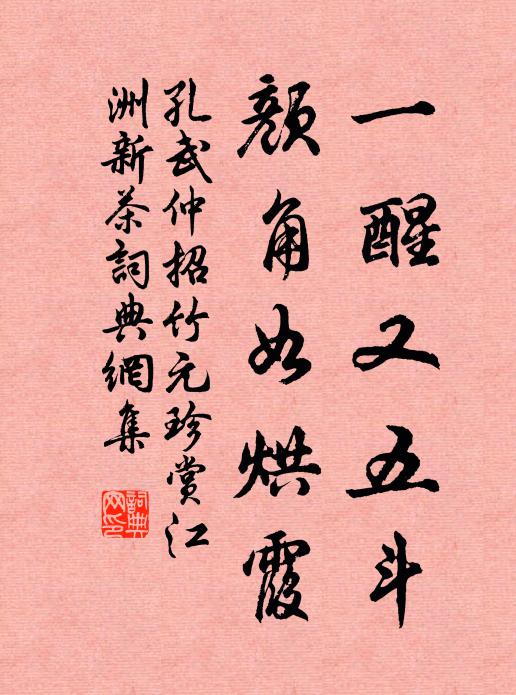 一醒又五斗
顏角如烘霞
孔武仲招竹元珍賞江
洲新茶詞典網集
詞典
网印